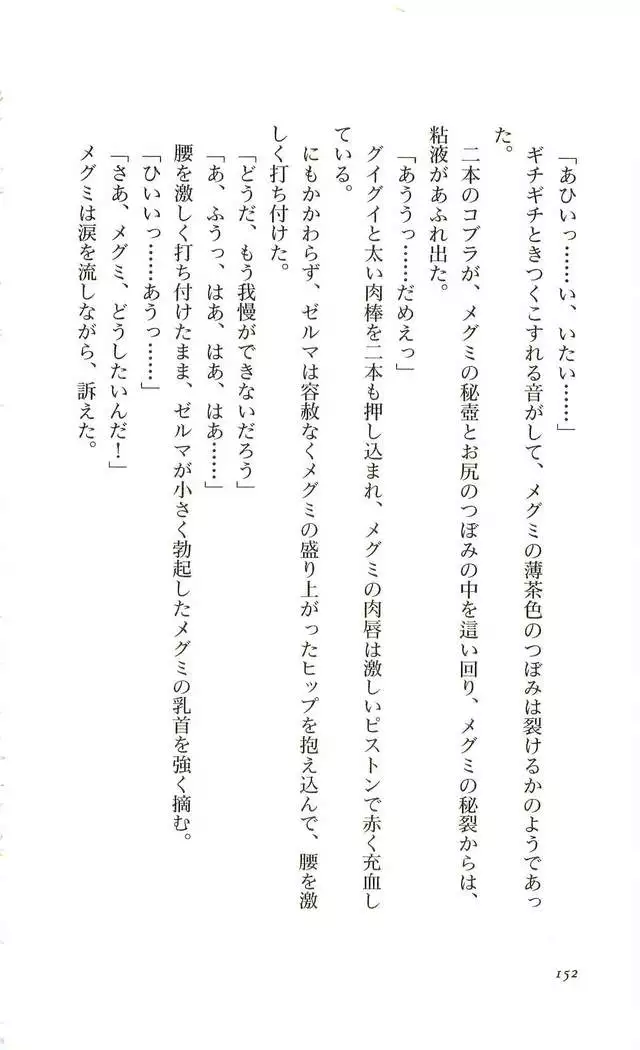 「あひいっ……い、いたい……」
ギチギチときつくこすれる音がして、メグミの薄茶色のつぼみは裂けるかのようであっ
た。
二本のコブラが、メグミの秘壺とお尻のつぼみの中を這い回り、メグミの秘裂からは、
粘液があふれ出た。
「あううっ……だめえっ」
グイグイと太い肉棒を二本も押し込まれ、メグミの肉唇は激しいピストンで赤く充血し
ている。
にもかかわらず、ゼルマは容赦なくメグミの盛り上がったヒップを抱え込んで、腰を激
しく打ち付けた。
「どうだ、もう我慢ができないだろう」
「あ、ふうっ、はあ、はあ、はあ……」
腰を激しく打ち付けたまま、ゼルマが小さく勃起したメグミの乳首を強く摘む。
「ひいいっ……あうっ……」
「さあ、メグミ、どうしたいんだ！」
メグミは涙を流しながら、訴えた。
152